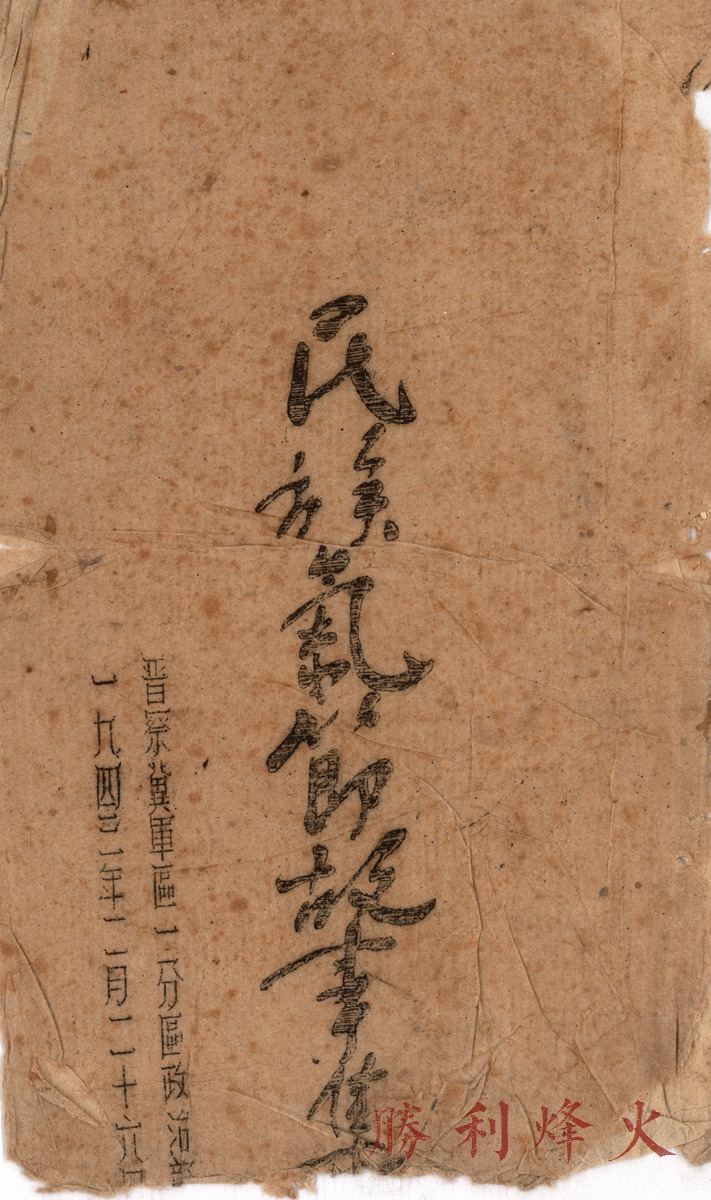 民族氣節故事集
晉察冀軍區一分區政治部
一九四三年二月二十六日
勝利烽火